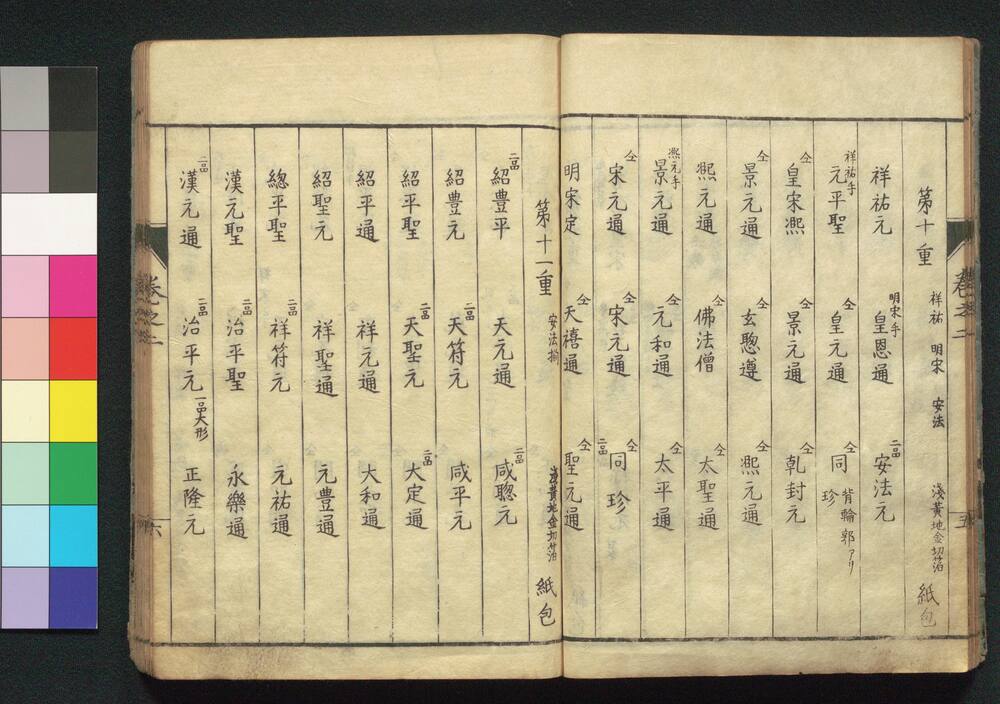 第十重 祥祐 明宋 安法 淺黄地金切箔 紙包
祥祐元 明宋手 皇恩通 二品 安法元
祥祐手 元平聖 仝 皇元通 仝 同 背輪郭アリ 珍
仝 皇宋凞 仝 景元通 仝 乹封元
仝 景元通 仝 玄聦遵 仝 凞元通
凞元通 仝 佛法僧 仝 太聖通
凞元手 景元通 仝 元和通 仝 太平通
仝 宋元通 仝 宋元通 仝 同 珍 二品
明宋定 仝 天禧通 仝 聖元通
第十一重 安法揃 淺黄地金切箔 紙包
二品 紹豊平 天元通 二品 咸聦元
紹豊元 二品 天符元 咸平元
紹平聖 二品 天聖元 二品 大定通
紹平通 祥元通 大和通
紹聖元 祥聖通 元豊通
總平聖 二品 祥符元 元祐通
漢元聖 二品 治平聖 永樂通
二品 漢元通 二品 治平元 一品大形 正隆元
卷之二 五
卷之二 六